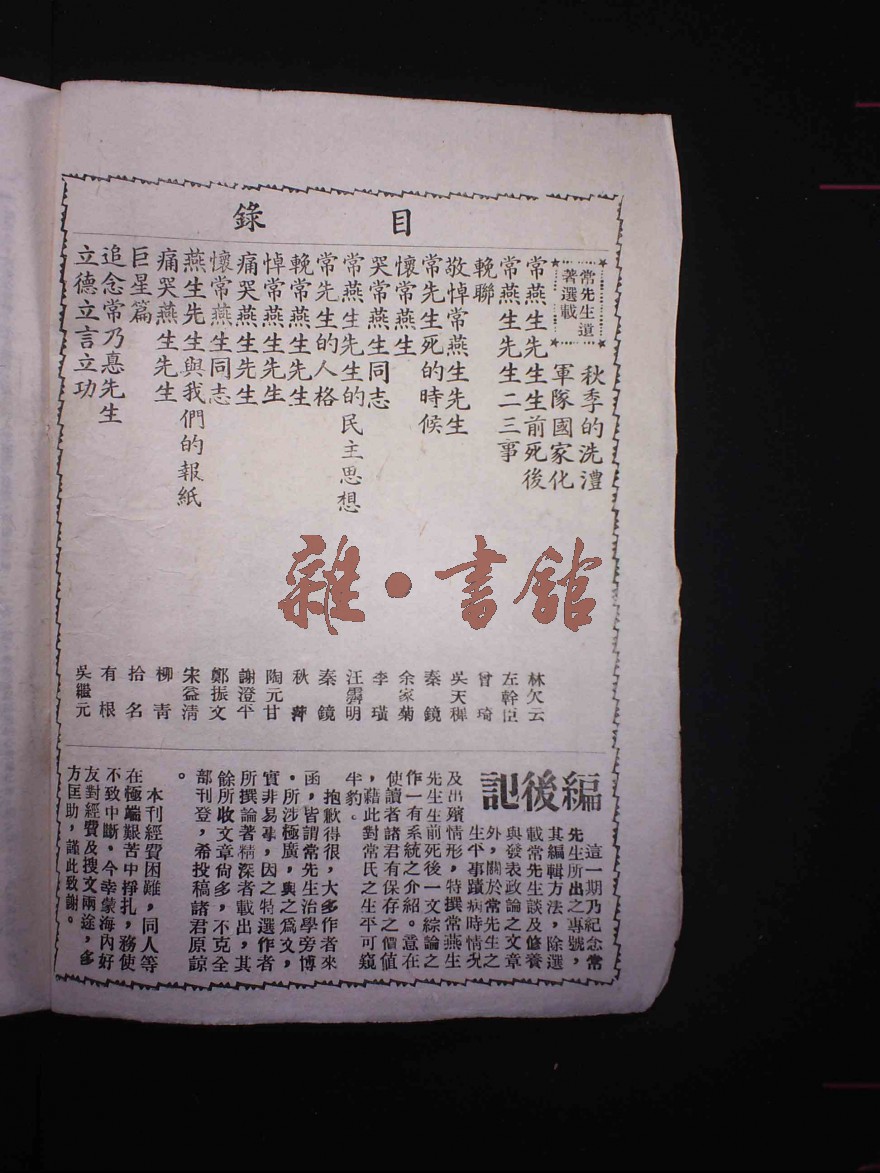 目錄
常先生道
著選載
秋季的洗澧
軍隊國家化
常燕生先生生前死後 林欠云
常燕生先生二三事 左幹臣
輓聯 曾琦
敬悼常燕生先生 吳天墀
常先生死的時候 秦鏡
懷常燕生 余家菊
哭常燕生同志 李璜
常燕生先生的民主思想 汪霽明
常先生的人格 秦鏡
輓常燕生先生 秋萍
悼常燕生先生 陶元甘
痛哭常燕生先生 謝澄平
懷常燕生同志 鄭振文
燕生先生與我們的報紙 宋益清
痛哭燕生先生 柳青
巨星篇 拾名
追念常乃惪先生 有根
立德立言立功 吳繼元
編後記
這一期乃紀念常
先生所出之專號，
其編輯方法，除選
載常先生談及修養
與發表政論之文章
外，關於常先生之
生平事蹟病時情況
及出殯情形，特撰常燕生
先生生前死後一文綜論之
作一有系統之介紹。意在
使讀者諸君有保存之價值
，藉此對常氏之生平可窺
半豹。
抱歉得很，大多作者來
函，皆謂常先生治學旁博
，所涉極廣，與之爲文，
實非易事，因之特選作者
所撰論著精深者載出，其
餘所收文章尙多，不克全
部刊登，希投稿諸君原諒
。
本刊經費困難，同人等
在極端艱苦中掙扎，務使
不致中斷。今幸蒙海內好
友對經費及搜文兩途，多
方匡助，謹此致謝。
雜·書館